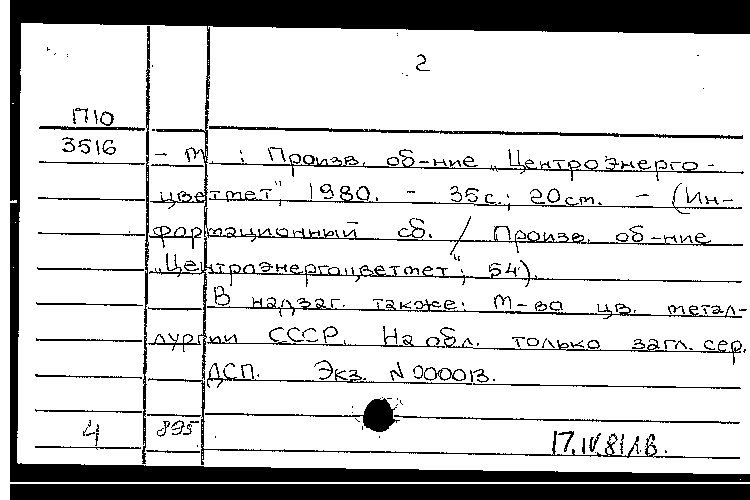 2
П10
3516
– М. : Произв. об-ние „Центроэнерго-
цветмет", 1980. – 35с.; 20см. – (Ин-
формационный сб. / Произв. об-ние
„Центроэнергоцветмет"; 54).
В надзаг. также: М-во цв. метал-
лургии СССР. На обл. только загл. сер.
ДСП. Экз. N 000013.
4 895
17.IV.81